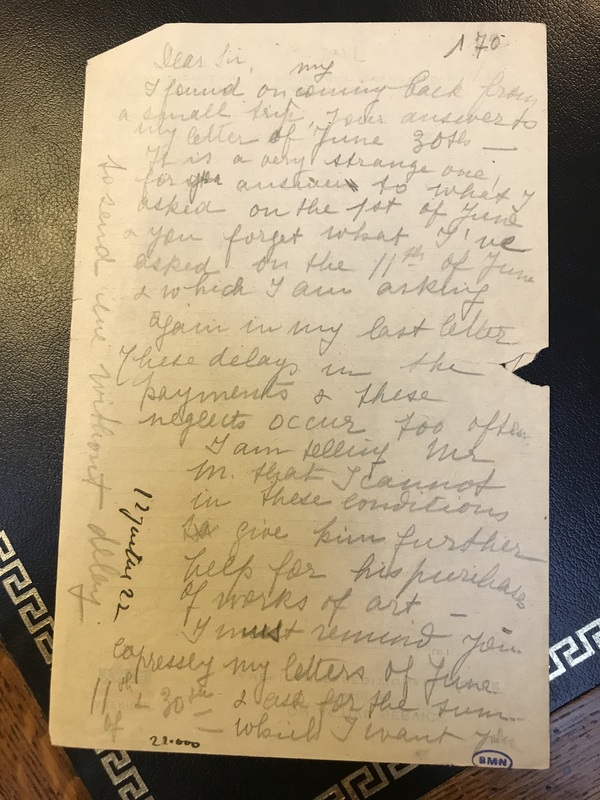 170
Dear Sir,
my
I found on coming back from
a small trip, your answer to
my letter of June 30th —
It is a very strange one,
for you answer to what I
asked on the 1st of June
& you forget what I've
asked on the 11th of June
& which I am asking
again in my last letter
These delays in the
payments & these
neglects occur too often
I am telling Mr
M. that I cannot
in these conditions
give him further
help for his purchases
of works of art —
I must remind you
expressly my letters of June
11th & 30th — & ask for the sum
of 22.000 — which I want you
to send me without delay
12 juillet 22
BMN